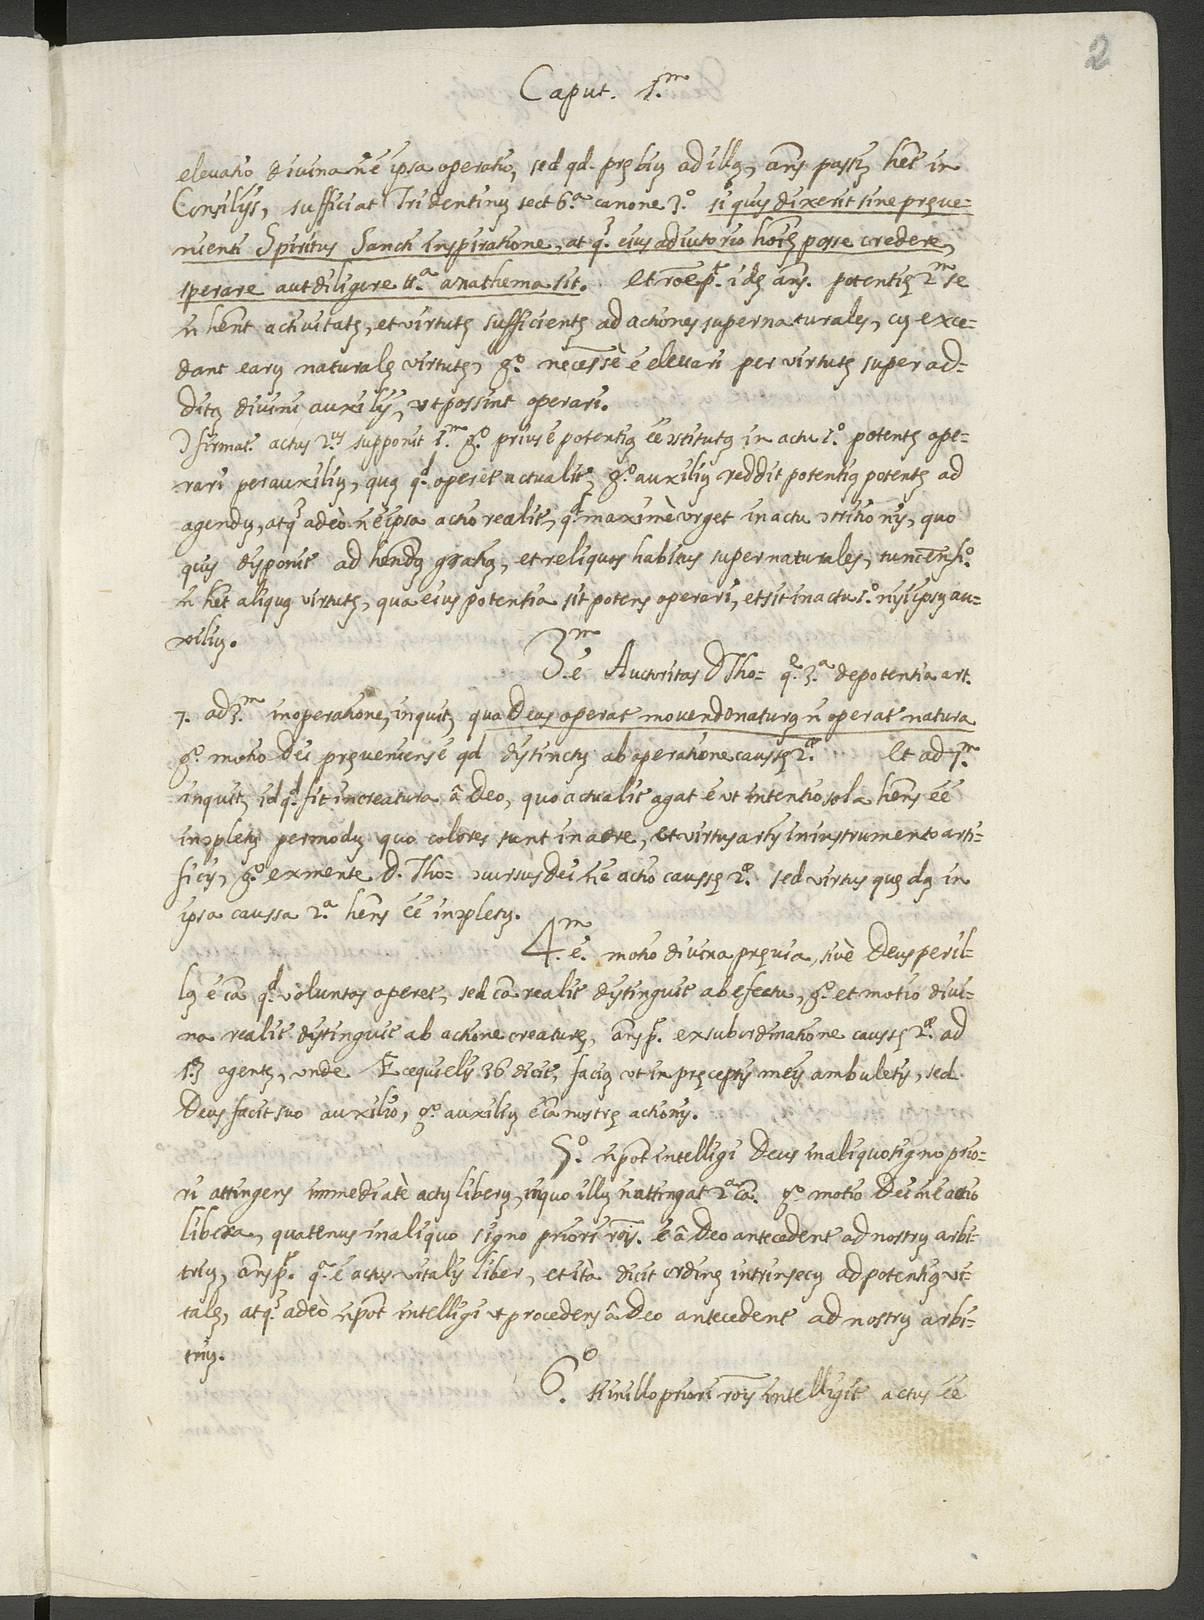 2
Caput. 1.m
elevatio divina nē ē ipsa operatio, sed qd. prębiu ad illā, añs passi hēt in
Consilijs, sufficiat Tridentinū sect 6.ª canone 3.º si quis dixerit sine pręve-
nienti Spiritus Sancti inspiratione, atq. eius adiutorio hoīē posse credere,
sperare aut diligere anathema sit. Et idē añs. potentię 2.m se
ñ hēnt activitatē, et virtutē sufficientē ad actiones supernaturales, cū exce-
dant earū naturalē virtutē, gº. necessè ē elevari per virtutē super ad-
ditā divini auxilij, ut possint operari.
actus 2.us supponit 1.m gº prius ē potentiā ēē in actu 1.º potentē ope-
rari per auxiliū, quā qd operet actualit, gº. auxiliū reddit potentiā potentē ad
agendū, atq adeò nē ē ipsa actio realit, qd maximè urget in actu ɔtritionis, quo
quis disponit ad hēndā gratiā, et reliquos habitus supernaturales, tunc
ñ hēt aliquā virtutē, qua eius potentia sit potens operari, et sit in actu 1.º nisi ipsū au-
xiliū.
3.m ē Auctoritas D Tho= q. 3.ª de potentia art.
7. ad 3.m in operatione, inquit, qua Deus operat movendo naturā ñ operat natura
gº. motio Dei pręveniens ē qd distinctū ab operatione caussę 2.ę Et ad 7.m
inquit, id qd fit in creatura â Deo, quo actualit agat ē ut intentio sola hēns ēē
inɔpletū per modū quo colores sunt in aere, et virtus artis in instrumento arti-
ficis, gº ex mente D. Tho= ɔcursus Dei nē ē actio caussę 2.ę sed virtus quędā in
ipsa caussa 2.ª hēns ēē inɔpletū.
4.m ē. motio divina pręvia, sivè Deus per il-
lā ē cā qd voluntas operet, sed cā realit distinguit ab efectu, gº. et motio divi-
na realit distinguit ab actione creaturę, añs p. ex subordinatione caussę 2.ę ad
1.ā agentē, unde Ecequielis 36 dicit, faciā ut in pręceptis meis ambuletis, sed
Deus facit suo auxilio, gº. auxiliū ē cā nostrę actionis.
5.º ñ pōt intelligi Deus in aliquo signo prio-
ri attingens immediatè actū liberū, in quo illū ñ attingat 2.ª cā. gº motio Dei nē ē actio
libera, quatenus in aliquo signo priori roīs. ē â Deo antecedent ad nostrū arbi-
triū, añs p. q. ē actus vitalis liber, et ità dicit ordinē intrinsecū ad potentiā vi-
talē, atq adeò ñ pōt intelligi ut procedens â Deo antecedent ad nostrū arbi-
triū.
6.º Si in illo priori roīs intelligit actus ēē